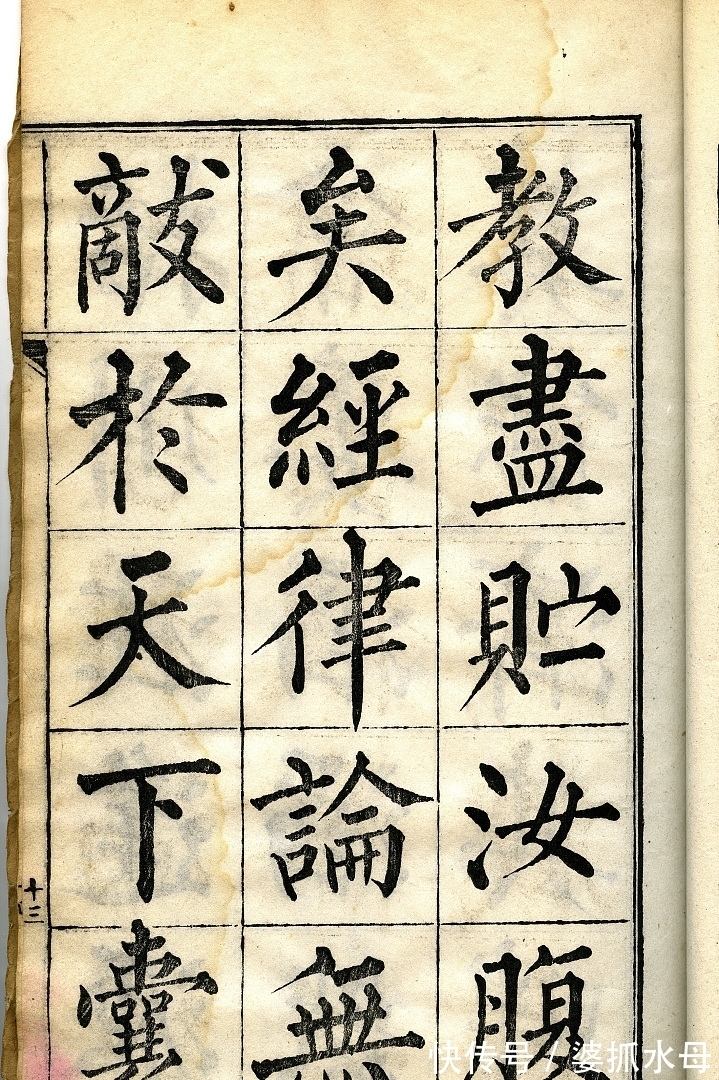 教盡貯汝腹
矣經律論無
敵於天下囊
十三
快传号 / 婆抓水母